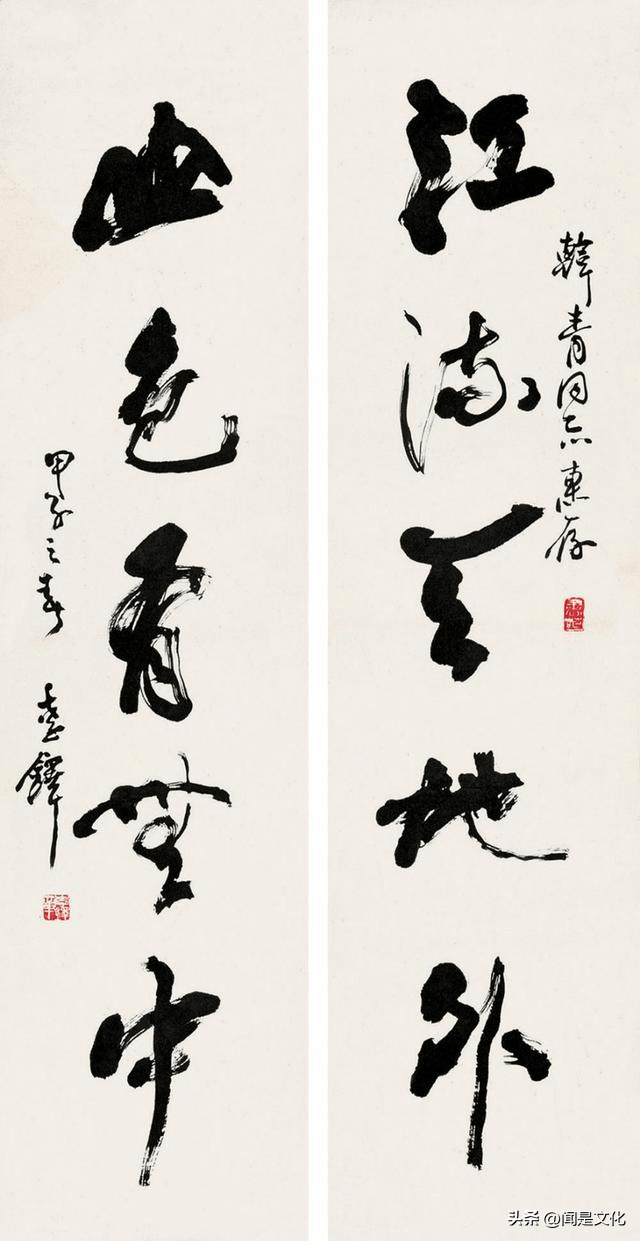 江流天地外
韓青同志惠存
山色有無中
甲子之春 李鐸
头条 @闻是文化